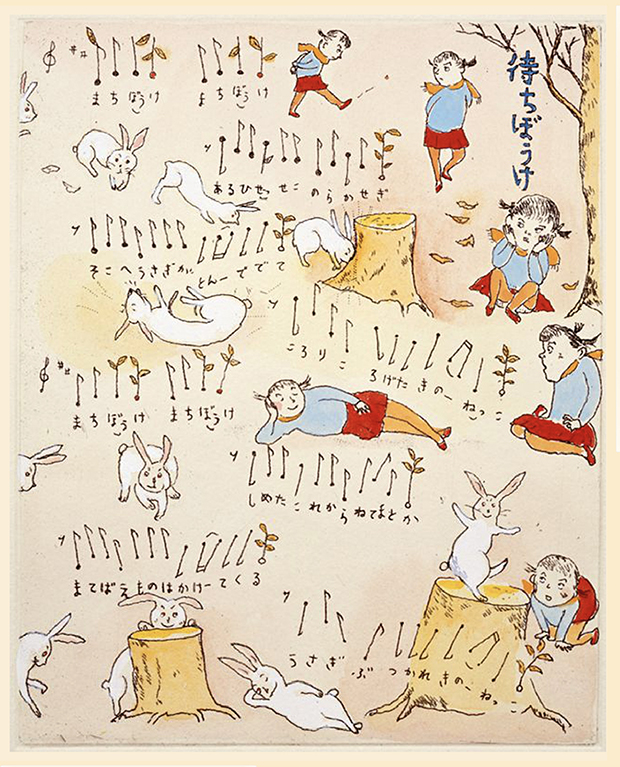 待ちぼうけ
まちぼうけ まちぼうけ
あるひせっせこ のらかせぎ
そこへうさぎが とんーででて
ころりころげた きのーねっこ
まちぼうけ まちぼうけ
しめたこれからねてまとか
まてばえものはかけーてくる
うさぎ ぶつかれ きのーねっこ